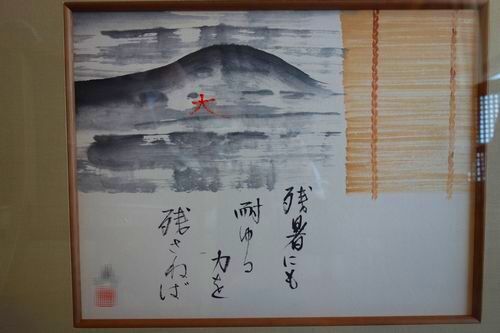 大
残暑にも
耐ゆる
力を
残さねば